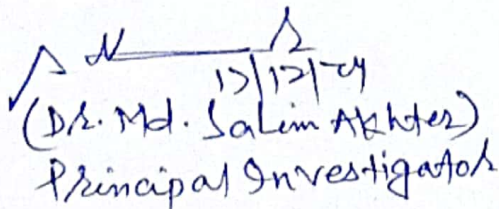 (Dr. Md. Salim Akhter)
Principal Investigator